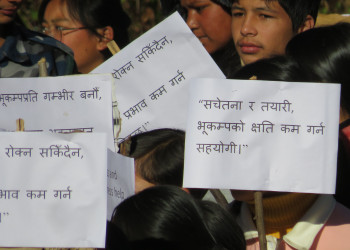 रोक्न सकिँदैन,
प्रभाव कम गर्न
भूकम्पप्रति गम्भीर बनौं,
रोक्न सकिँदैन,
प्रभाव कम गर्न
"सचेतना र तयारी,
भूकम्पको क्षति कम गर्न
सहयोगी।"